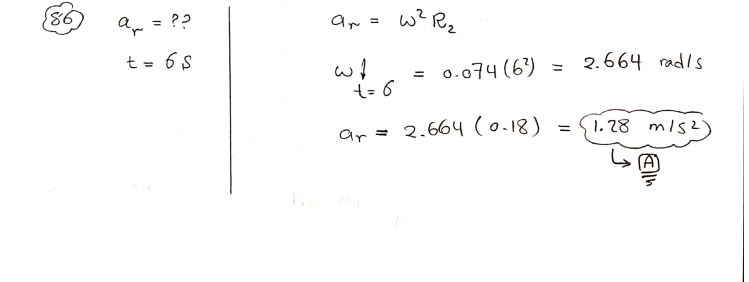 86 a_r = ??
t = 6 s
a_r = ω² R₂
ω↓ t=6 = 0.074 (6²) = 2.664 rad/s
a_r = 2.664 (0.18) = 1.28 m/s²
↳ A